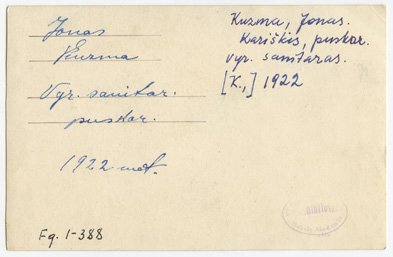 Jonas
Kuzma
Vyr. sanitar.
puskar.
1922 met.
Kuzma, Jonas.
Kariškis, puskar.
vyr. sanitaras.
[K.,] 1922
Fg. 1-388